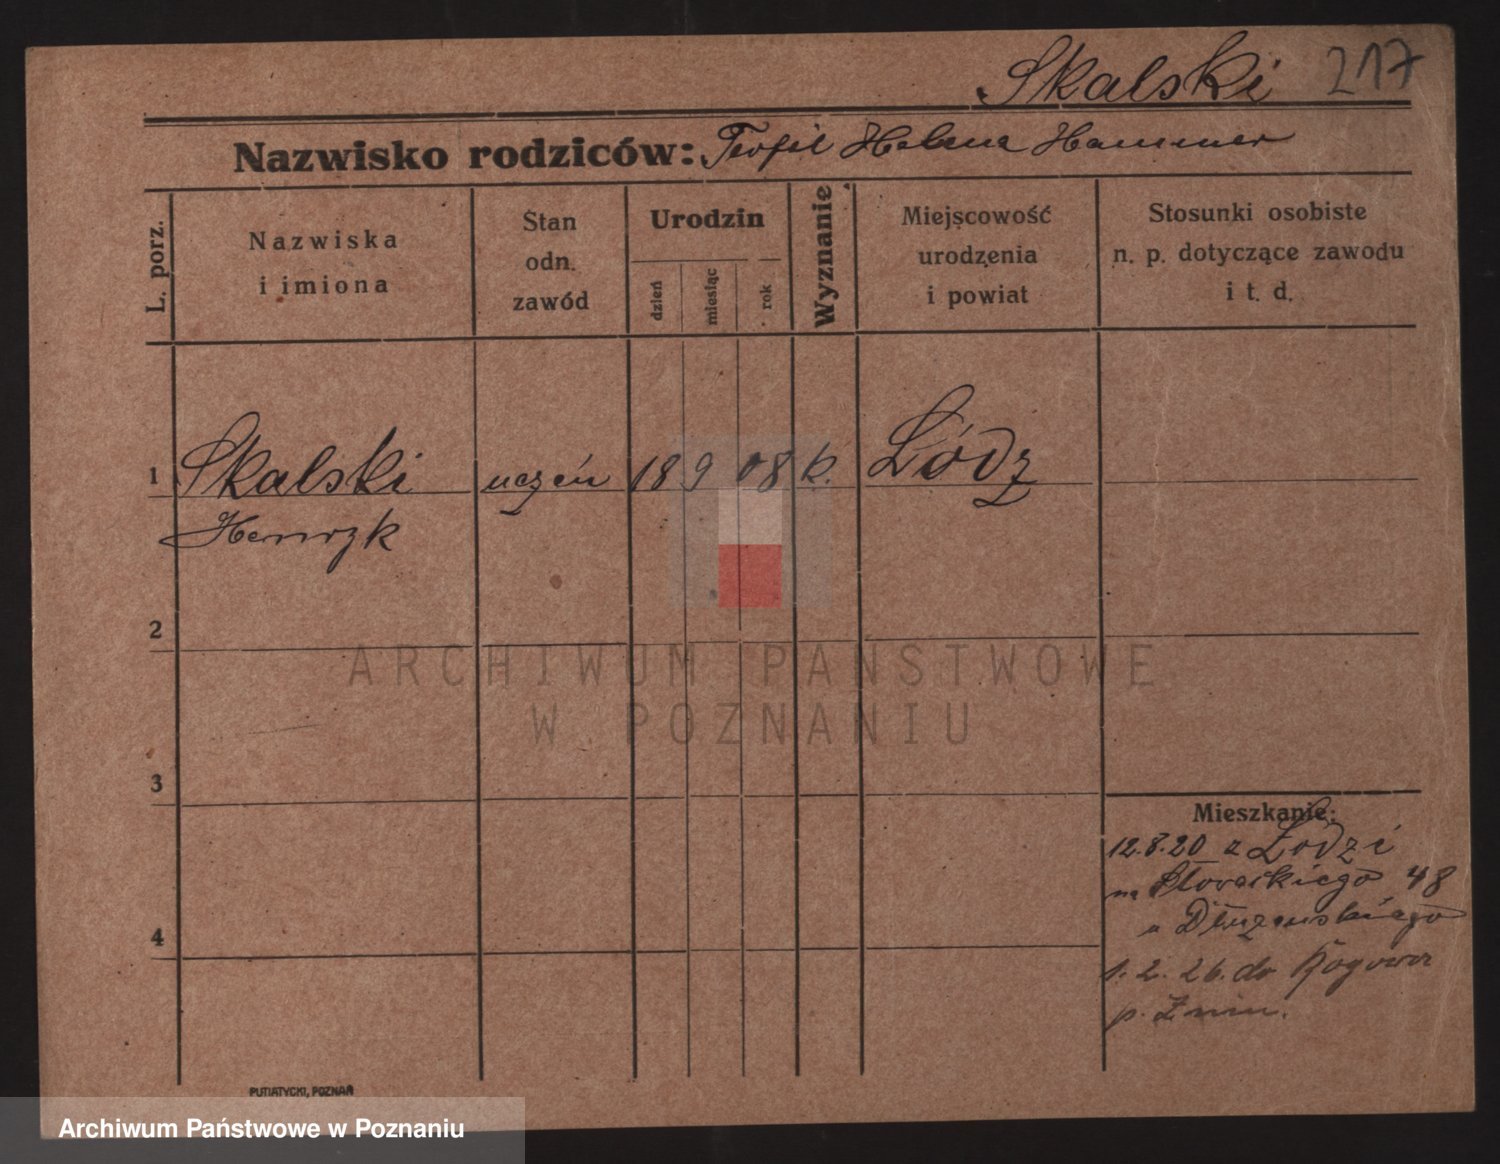 Skalski 217
Nazwisko rodziców: Teofil Helena Hammer
L. porz.
Nazwiska
i imiona
Stan
odn.
zawód
Urodzin
dzień
miesiąc
rok
Wyznanie
Miejscowość
urodzenia
i powiat
Stosunki osobiste
n. p. dotyczące zawodu
i t. d.
1 Skalski uczeń 18 9 08 k. Łódź
Henryk
2
3
4
Mieszkanie:
12.8.20 z Łodzi
na Słowackiego 48
u Dłużewskiego
1. 2. 26. do Rogowa
p. Żnin.
PUTIATYCKI, POZNAŃ
ARCHIWUM PAŃSTWOWE
W POZNANIU
Archiwum Państwowe w Poznaniu